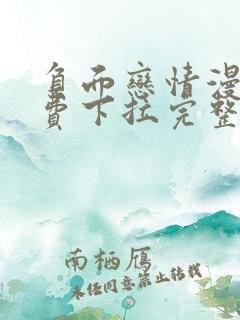 負而戀情漫
費下拉完整
南栖雁
未经同意禁止转载